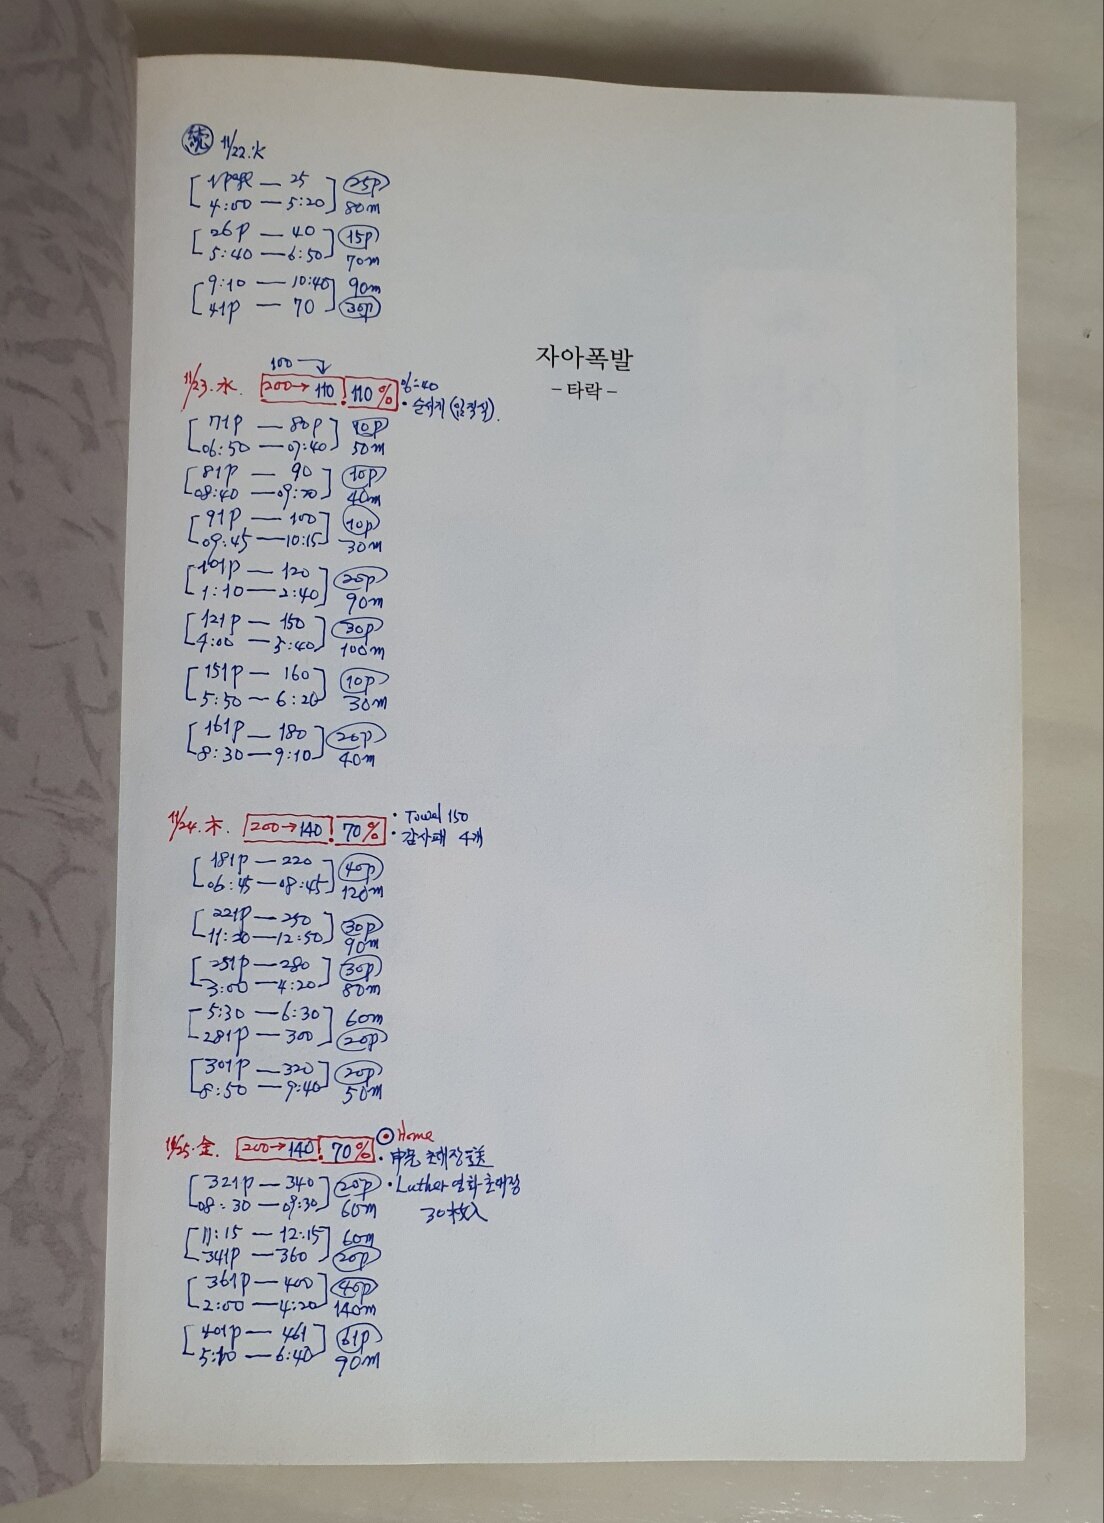 続 11/22.火
1page — 25 25p
4:00 — 5:20 80m
26p — 40 15p
5:40 — 6:50 70m
9:10 — 10:40 90m
41p — 70 30p
자아폭발
- 타락 -
100
11/23.水. 200→110! 110%
71p — 80p 10p
06:50 — 07:40 50m
81p — 90 10p
08:40 — 09:20 40m
91p — 100 10p
09:45 — 10:15 30m
101p — 120 20p
1:10 — 2:40 90m
121p — 150 30p
4:00 — 5:40 100m
151p — 160 10p
5:50 — 6:20 30m
161p — 180 20p
8:30 — 9:10 40m
11/24.木. 200→140! 70%
· Towel 150
· 감사패 4개
181p — 220 40p
06:45 — 08:45 120m
221p — 250 30p
11:20 — 12:50 90m
251p — 280 30p
3:00 — 4:20 80m
5:30 — 6:30 60m
281p — 300 20p
301p — 320 20p
8:50 — 9:40 50m
11/25.金. 200→140! 70%
Home
· 초대장 送
321p — 340 20p
08:30 — 09:30 60m
· Luther 영화 초대장
30枚入
11:15 — 12:15 60m
341p — 360 20p
361p — 400 40p
2:00 — 4:20 140m
401p — 461 61p
5:10 — 6:40 90m